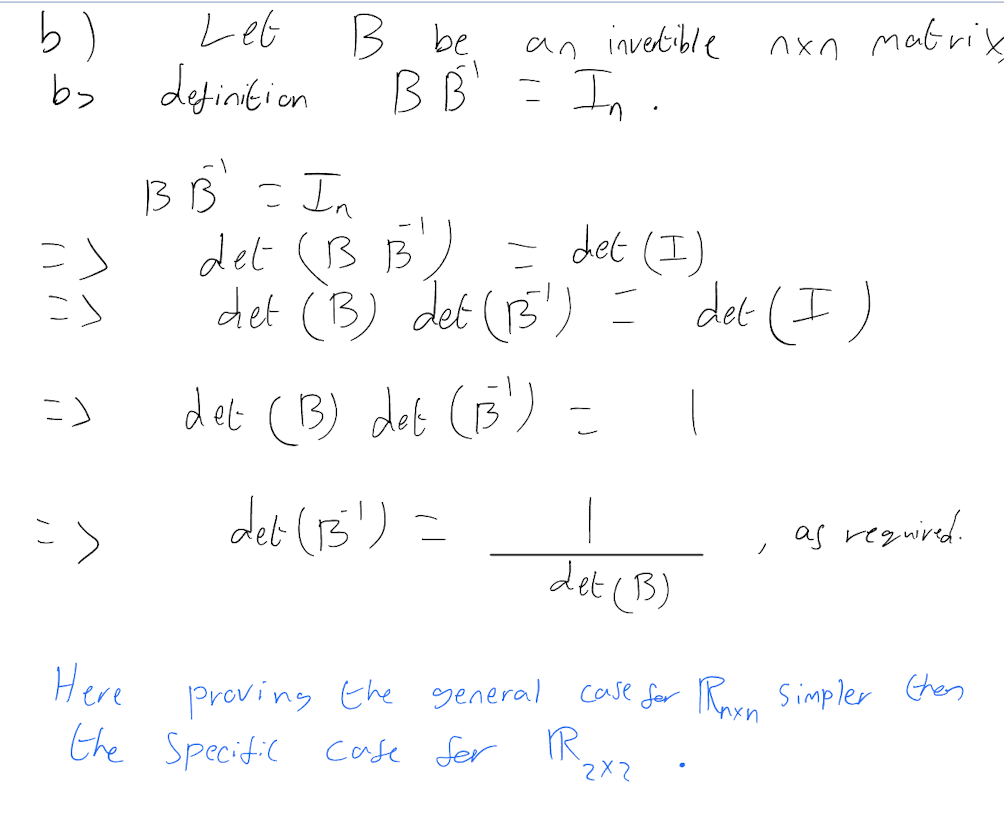 b) Let B be an invertible nxn matrix,
by definition B B⁻¹ = Iₙ .
B B⁻¹ = Iₙ
=> det (B B⁻¹) = det (I)
=> det (B) det (B⁻¹) = det (I)
=> det (B) det (B⁻¹) = 1
=> det (B⁻¹) = 1 / det (B) , as required.
Here proving the general case for ℝₙₓₙ simpler then
the specific case for ℝ₂ₓ₂ .